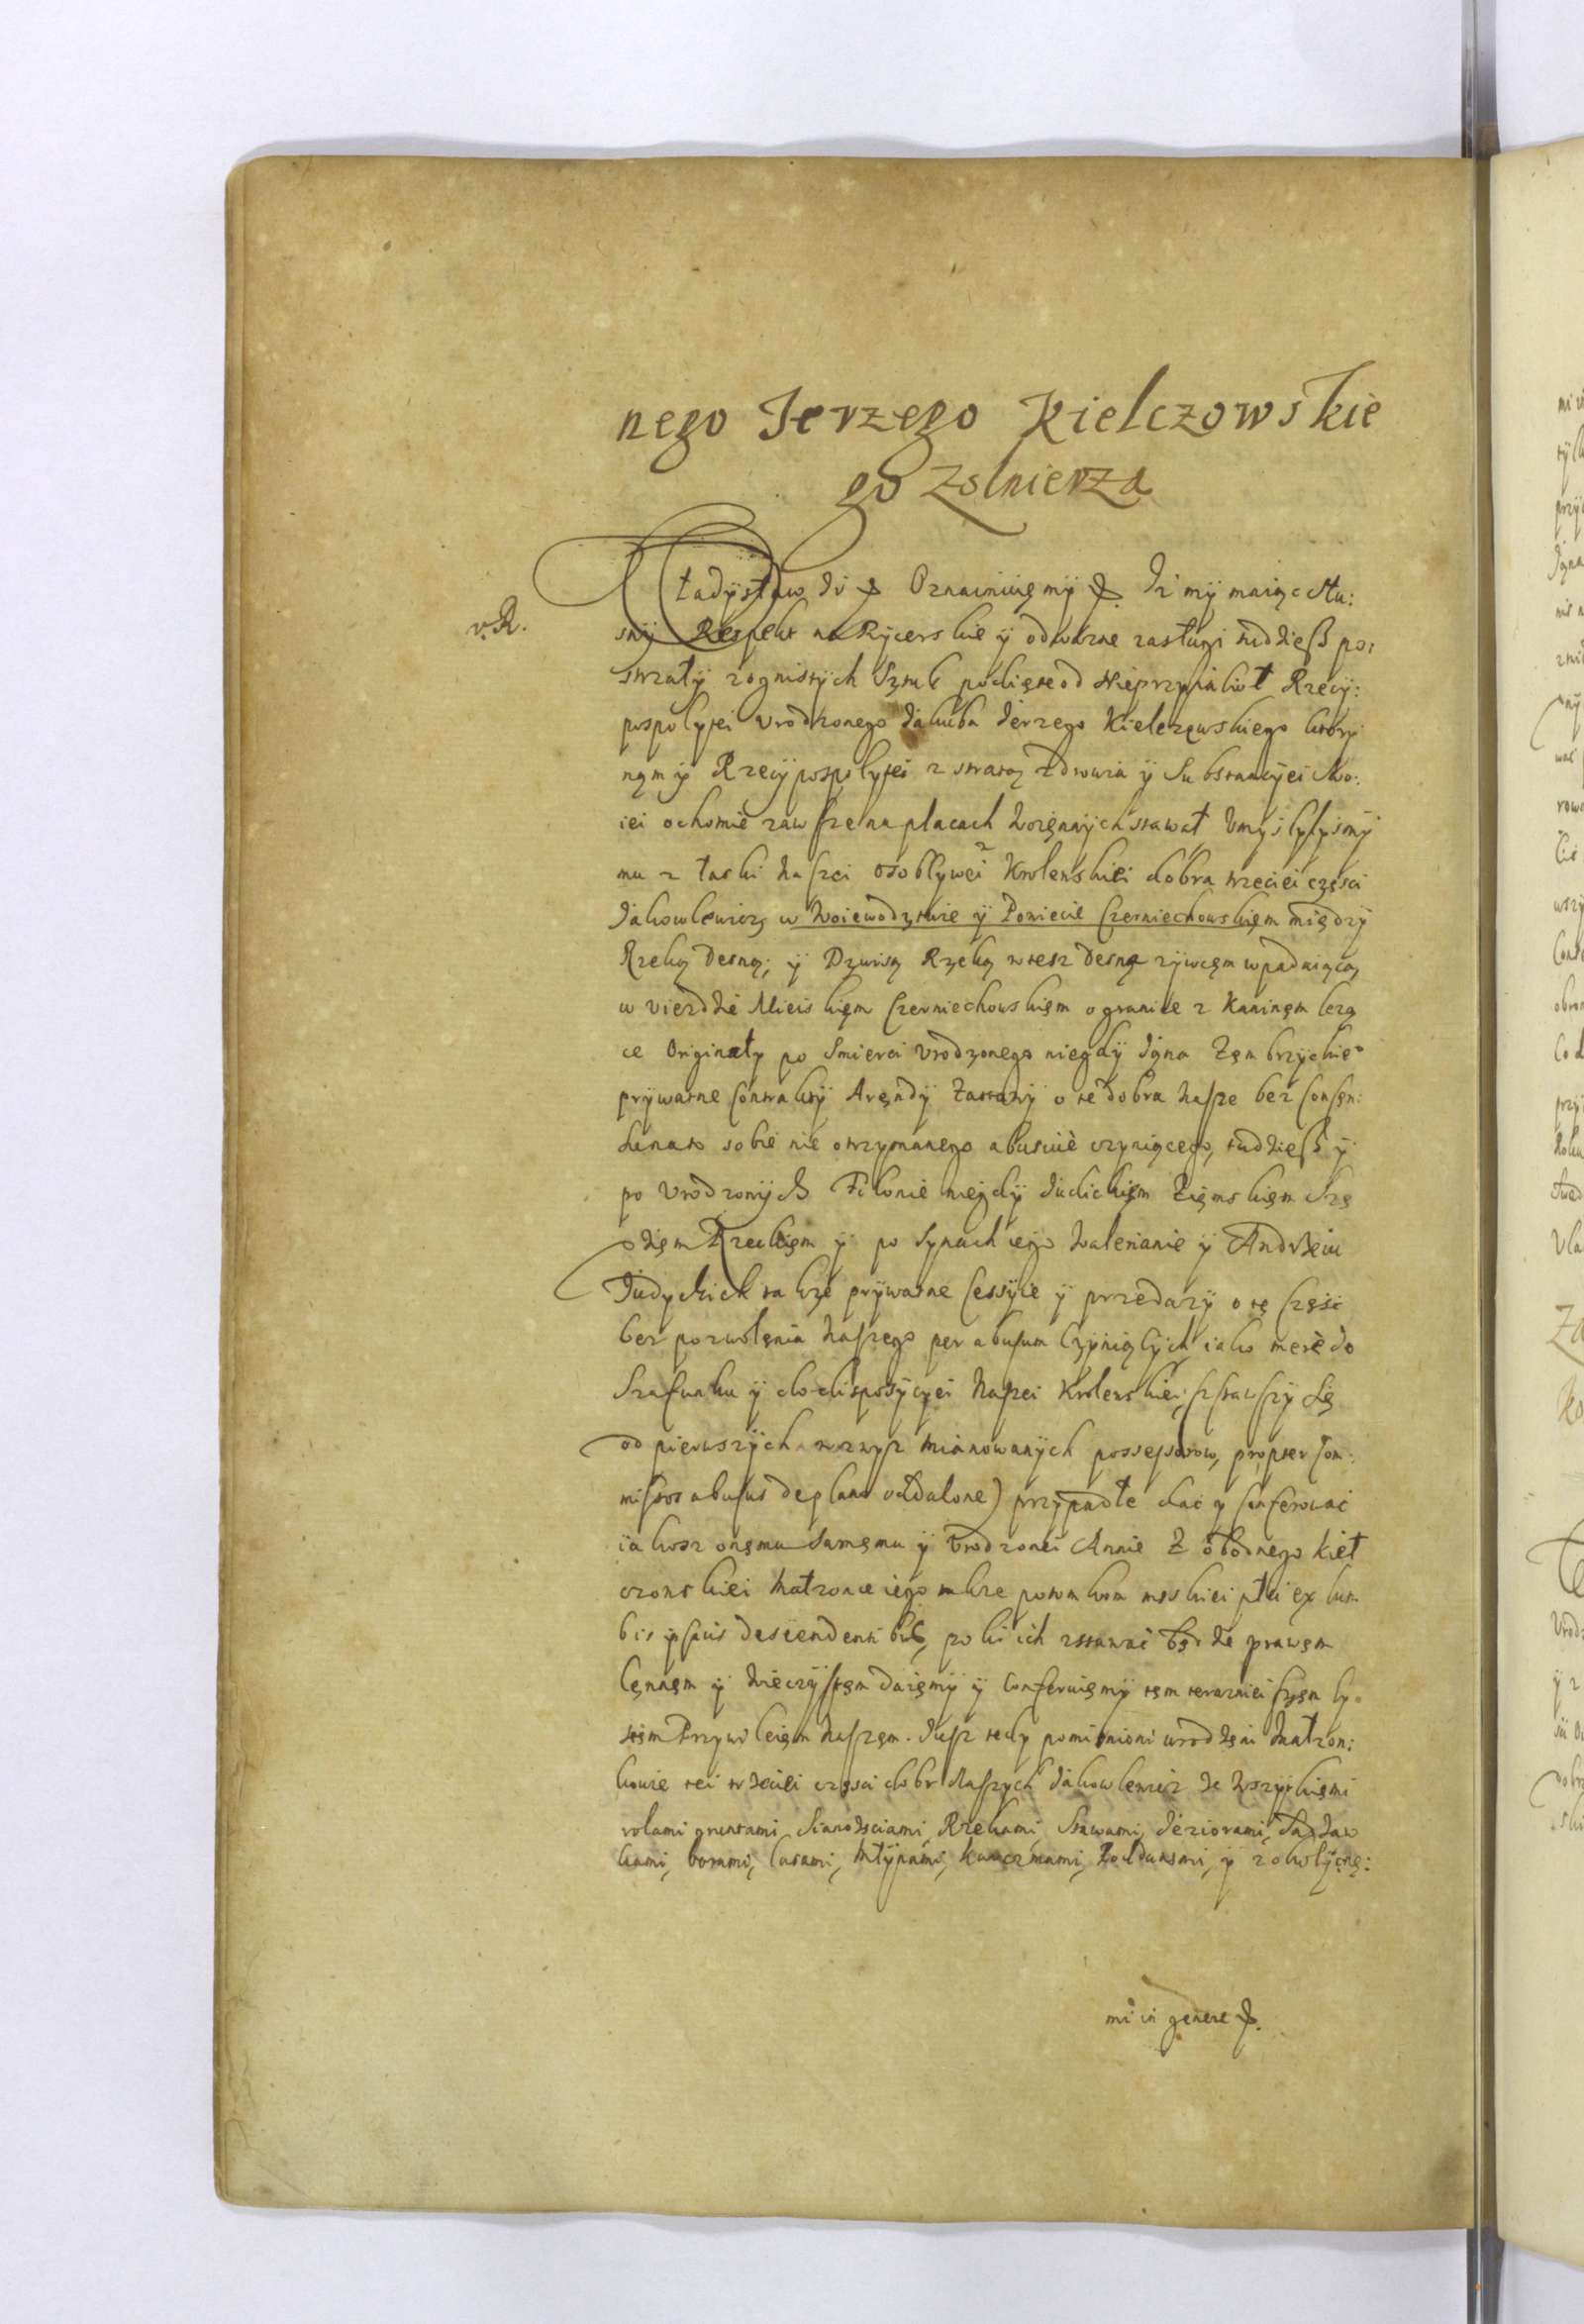 nego Jerzego Kielczowskie
go Zolnierza
v. R.
Władysław IV Oznaimuięmÿ Iż mÿ maiąc słu:
snÿ Respekt na Rÿcerskie ÿ odważne zasługi tudzießz po:
strzałÿ z ognistÿch Sztuk podięte od Nieprzyiaciół Rzecÿ:
pospolytei vrodzonego Jakuba Jerzego Kielczęwskiego ktory
nąm ÿ Rzecÿpospolytei z utratą zdrowia ÿ Substancÿei Swo:
iei ochomie zawsze na placach woięnnÿch stawał vmyslylysmÿ
mu z łaski naszei osoblywei Krolewskiei dobra trzeciei częsci
Jakowlewicz w Woiewodztwie ÿ Powiecie Czerniechowskięm międzÿ
Rzeką Desną, ÿ Dzwisą Rzeką w tesz Desnę zÿwcęm wpadaiącą
w vieźdźie Mieiskięm Czerniechowskięm o granice z Kaninęm leżą
ce Originały po Smierci vrodzonego niegdÿ Igna Zęmbrzyckie
prÿwatne Contraktÿ Aręndÿ Zastawÿ o te dobra nasze bez Consęn:
su na to sobie nie otrzymanego abusiue czyniącego, tudzießz ÿ
po vrodzonÿch Filonie niegdÿ Judickięm Zięmskięm Sęę
dzięm Rzeckięm ÿ po Synach iego Walerianie ÿ Andrzeiu
Judyckich także prÿwatne Cessÿie ÿ przedażÿ o tę Część
bez pozwolęnia naszego per abusum Czÿniących iako merè do
Szafunku ÿ do disposÿcyei naszei Krolewskiei, sztawszÿ się
od pierwszÿch zwysz mianowanÿch possessorow, propter Com:
missos abusus de plano oddalone) przypadłe dać y Conferować
iakosz onęmu samęmu ÿ vrodzonei Annie Z obodnego Kieł
czowskiei małzonce iego także potomkom męskiei płci ex lum
bis ipsius descendentibus, poki ich zstawać będzie prawęm
lęnnęm ÿ wieczÿstęm daięmÿ ÿ Conferuięmÿ tęm teraznieiszęm ly:
stęm Przÿwileięm naszęm. Jusz tedy pomienioni urodzęni małzon:
kowie tei trzeciei częsci dobr naszych Jakowlewicz ze wszÿtkięmi
rolami gruntami Sianożęciami, Rzekami, Stawami, Jeziorami, Sadzaw
kami, borami, lasami, młÿnami, karczmami, poddanÿmi, ÿ z okolÿczną:
mi in genere